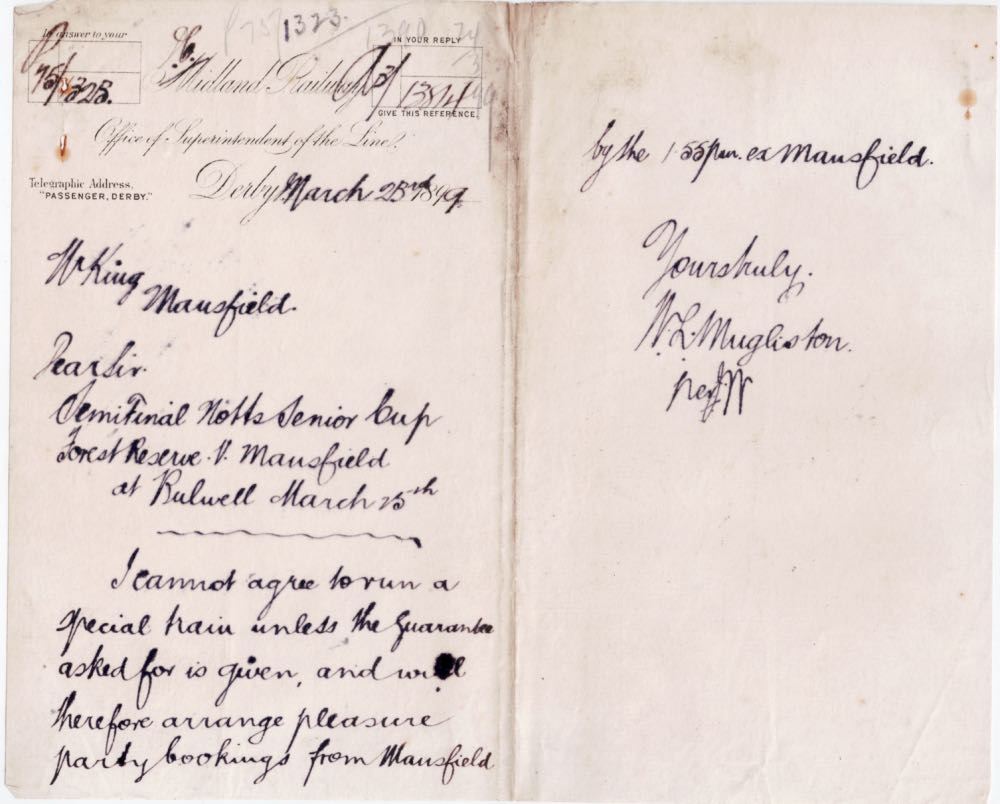 1323.
In answer to your
P
75/1323.
Midland Railway
IN YOUR REPLY
1384
GIVE THIS REFERENCE.
Office of Superintendent of the Line,
Telegraphic Address,
"PASSENGER, DERBY."
Derby March 23rd 1899.
Mr King
Mansfield.
Dear Sir.
Semi Final Notts Senior Cup
Forest Reserve. V. Mansfield
at Bulwell March 25th
I cannot agree to run a
special train unless the Guarantee
asked for is given, and will
therefore arrange pleasure
party bookings from Mansfield
by the 1-55 p.m. ex Mansfield.
Yours truly.
W. L. Mugliston.
per JW